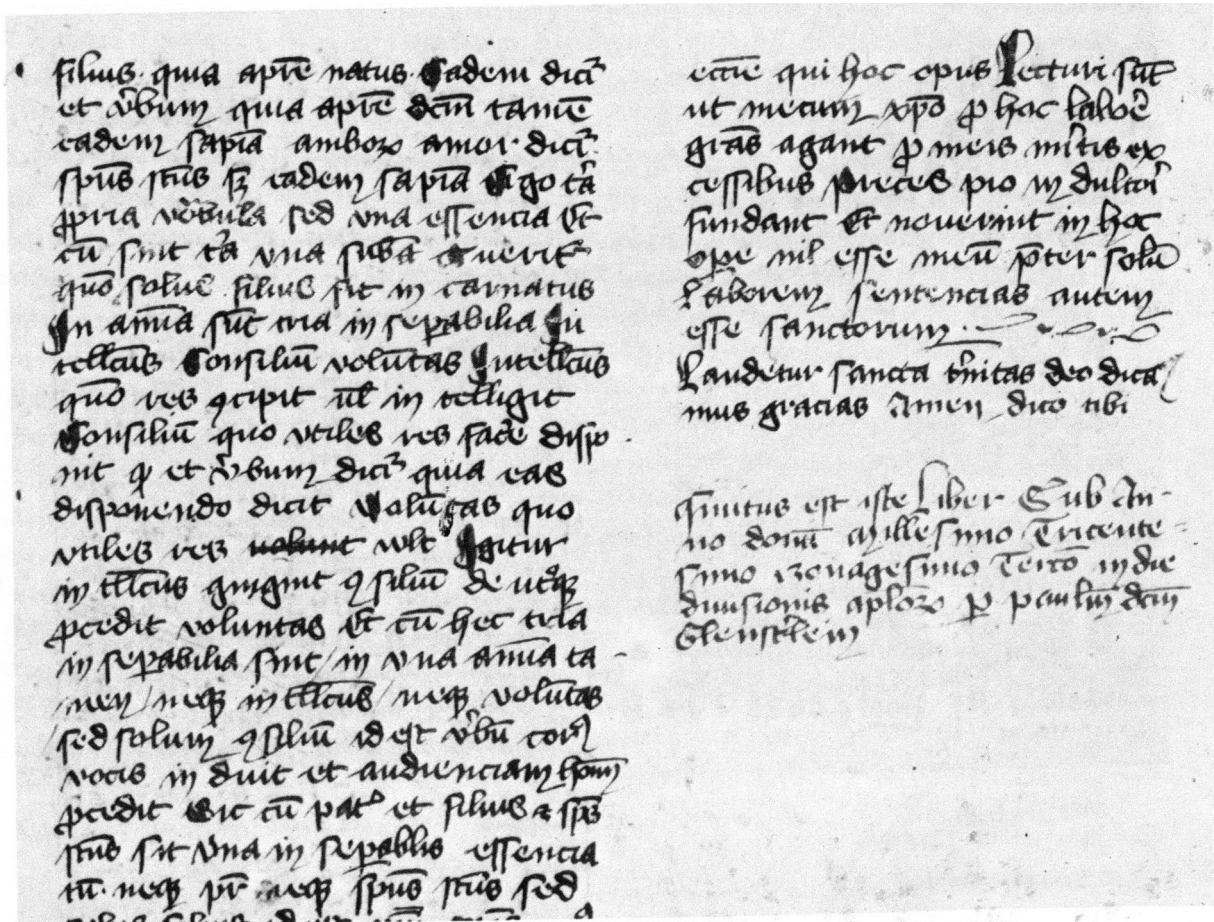 filius. quia a pr̄e natus. Eadem dicit̄
et v̄bum quia a pr̄e dc̄m tamē
eadem sapīa amborꝫ amor dicit̄.
sp̄us sc̄us sꝫ eadem sapīa Ergo t̄a
ꝓpria vo̊bula sed vna essencia Et
cū sint t̄a vna sub̄a
quō solus filius sit in carnatus
In anīa su̅t tria in seꝑabilia In
tellc̄us Consiliū volūtas Intellc̄us
quō res ꝯcipit ul̄ in telligit
Consiliū quo vtiles res fac̄e dispo
nit et v̄bum dicit̄ quia eas
disponendo dicit Volūtas quo
vtiles res volunt vlt Igitur
in tll̄cus gingnit ꝯsiliū de ut̊qꝫ
ꝓcedit voluntas Et cū hec tria
in seꝑabilia sint / in vna anīa ta
/men / neqꝫ in tll̄cus / neqꝫ volūtas
/ sed solum ꝯsiliū id est v̄bū
vocis in duit et audienciam hoīm
ꝓcedit Sic cū pat᷒ et filius ⁊ sp̄s
sc̄us sit vna in seꝑablis essencia
tn̄. neqꝫ pr̄ neqꝫ sp̄us sc̄us sed
ecc̄ie qui hoc opus Lecturi su̅t
ut mecum xp̄o ꝓ hoc labore̅
gr̄as agant ꝓ meis ml̄tis ex
cessibus preces pio in dultori
fundant Et noverint in hoc
oꝑe nil esse meū p̄ter solū
Laborem sentencias autem
esse sanctorum.
Laudetur sancta t̄nitas deo dica
mus gracias Amen dico tibi
finitus est iste Liber Sub An-
no domī Millesimo Tricente-
simo Nonagesimo Terco̅ in die
diuisionis aplorꝫ ꝑ paulū dc̄m